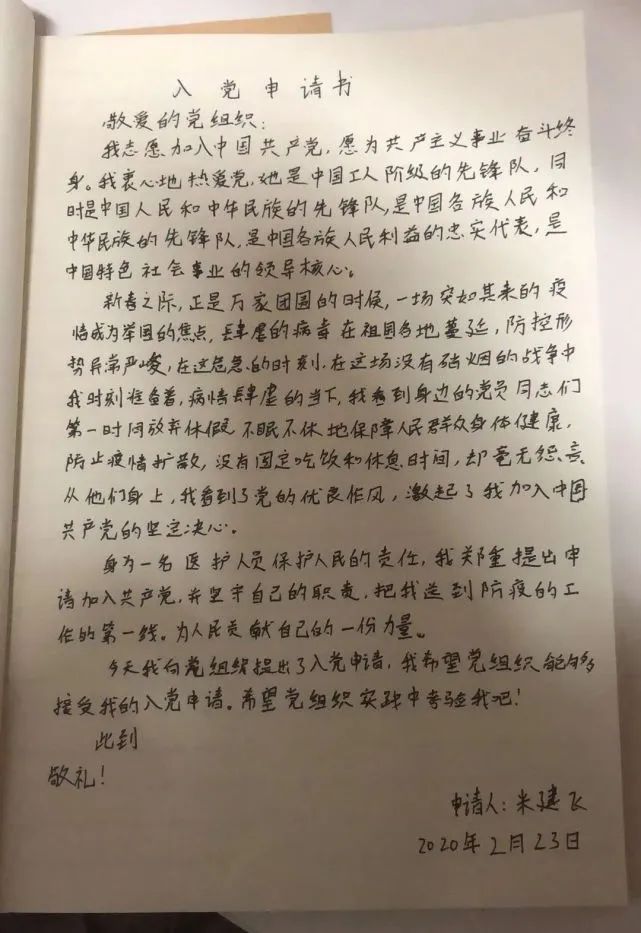 入党申请书
敬爱的党组织:
我志愿加入中国共产党,愿为共产主义事业奋斗终
身。我衷心地热爱党,她是中国工人阶级的先锋队,同
时是中国人民和中华民族的先锋队,是中国各族人民和
中华民族的先锋队,是中国各族人民利益的忠实代表,是
中国特色社会事业的领导核心。
新春之际,正是万家团圆的时候,一场突如其来的疫
情成为举国的焦点,肆虐的病毒在祖国各地蔓延,防控形
势异常严峻,在这危急的时刻,在这场没有硝烟的战争中
我时刻准备着,病情肆虐的当下,我看到身边的党员同志们
第一时间放弃休假,不眠不休地保障人民群众身体健康,
防止疫情扩散,没有固定吃饭和休息时间,却毫无怨言,
从他们身上,我看到了党的优良作风,激起了我加入中国
共产党的坚定决心。
身为一名医护人员保护人民的责任,我郑重提出申
请加入共产党,并坚守自己的职责,把我送到防疫的工
作的第一线。为人民贡献自己的一份力量。
今天我向党组织提出了入党申请,我希望党组织能够
接受我的入党申请。希望党组织实践中考验我吧!
此到
敬礼!
申请人:米建飞
2020年2月23日